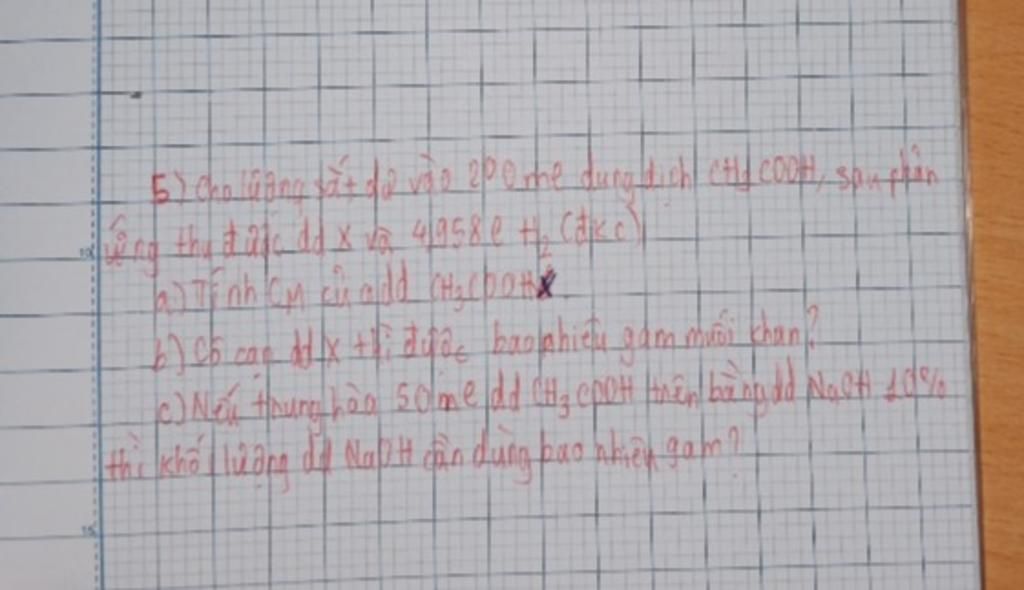 5) Cho lượng sắt dư vào 200ml dung dịch CH3COOH, sau phản
ứng thu được dd X và 4,958l H2 (đkc)
a) Tính CM của dd CH3COOH
b) Cô cạn dd X thì được bao nhiêu gam muối khan?
c) Nếu trung hòa 50ml dd CH3COOH trên bằng dd NaOH 10%
thì khối lượng dd NaOH cần dùng bao nhiêu gam?